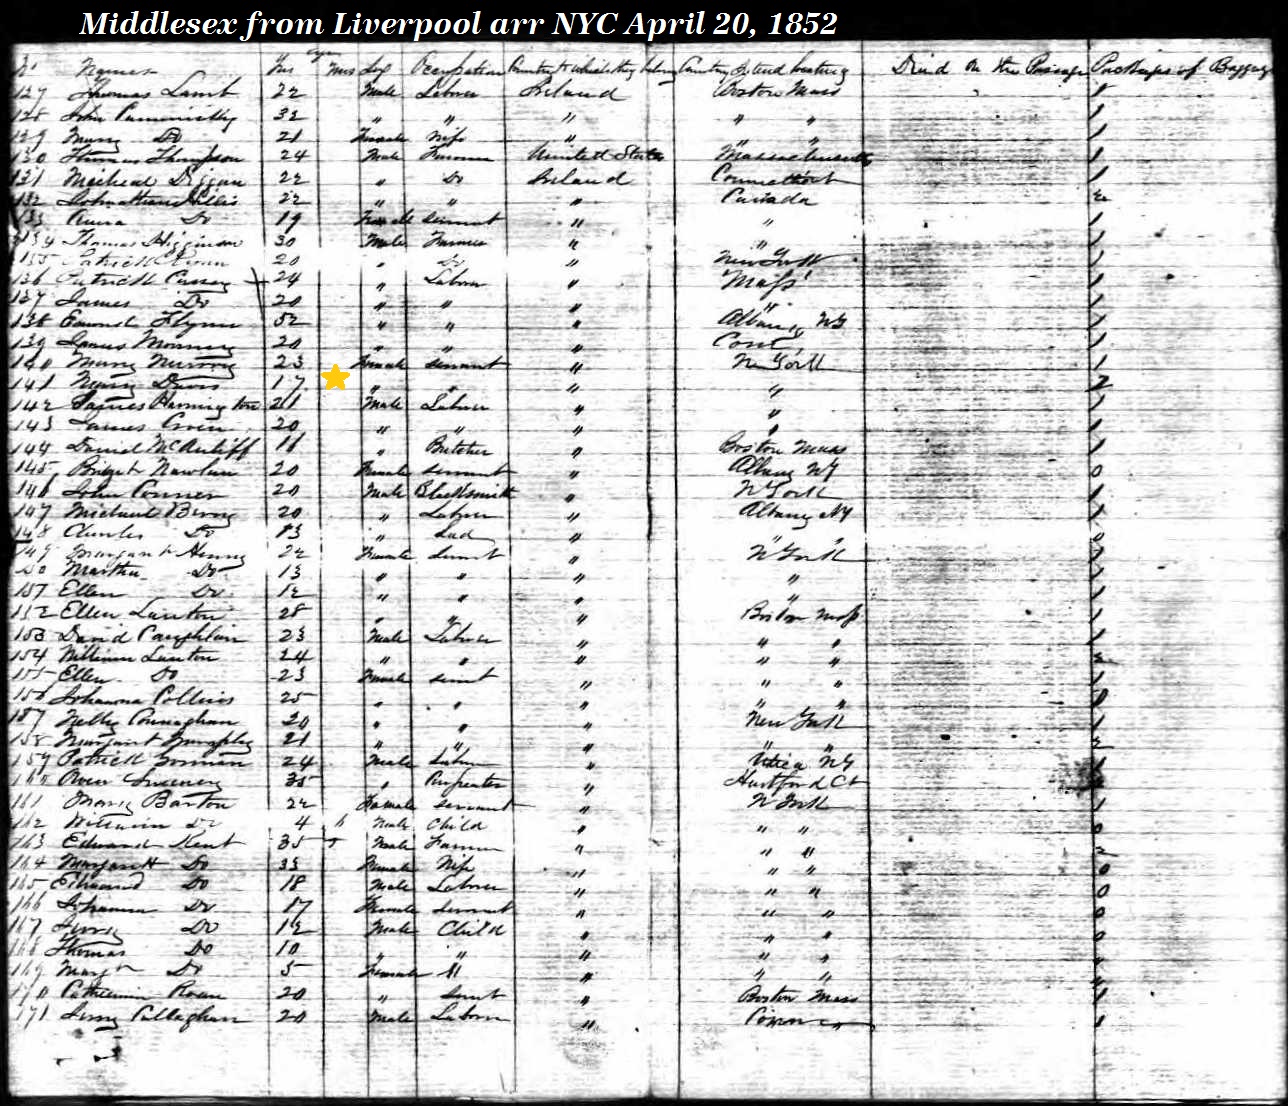 Middlesex from Liverpool arr NYC April 20, 1852
No Names Age Yrs Mos Sex Occupation Country to which they belong Country Intend locating Died on the Passage Packages of Baggage
127 Thomas Lamb 22 Male Labour Ireland Boston Mass 1
128 John 32 " " " " " 1
129 Mary Do 21 Female Wife " " " 1
130 Thomas Thompson 24 Male Farmer United States Massachusetts 1
131 Micheal 22 " Do Ireland Connecticut 1
132 22 " " " Canada
133 Do 19 Female servant " " 1
134 Thomas Higginson 30 Male Farmer " " 1
135 Patrick 20 " Do " New York 1
136 Patrick Casey 24 " Labour " Mass 1
137 James Do 20 " " " " 1
138 Edmond Flynn 52 " " " Albany NY 1
139 James 20 " " " Cont 1
140 Mary Murray 23 Female servant " N York 1
141 Davis 17 " " " " 2
142 21 Male Labour " " 1
143 James 20 " " " " 1
144 Daniel McAuliff " Butcher " Boston Mass 1
145 Bridget Nowlan 20 Female servant " Albany NY 0
146 John Conner 20 Male Blacksmith " N York 1
147 Michael 20 " Labour " Albany NY 1
148 Charles Do 13 " Lad " " " 0
149 Margaret Henry 22 Female Servnt " N York 1
50 Martha Do 13 " " " " 1
151 Ellen Do 12 " " " " 1
152 Ellen Lanton 28 " " " Boston Mass 1
153 David Caughlin 23 Male Labour " " " 1
154 William Lanton 24 " " " " "
155 Ellen Do 23 Female servnt " " " 1
156 Johanna Collins 25 " " " " " 0
157 Nelly Connaghan 20 " " " New York 1
158 Margaret Murphy 21 " " " " "
159 Patrick Gorman 24 Male Labour " Utica NY 1
160 Owen Sweeney 35 " Carpenter " Hartford Ct
161 Mary Barton 22 Female servant " N York 1
162 William Do 4 Male Child " " " 0
163 Edward Kent 35 Male Farmer " " " 2
164 Margaret Do 33 Female Wife " " " 0
165 Edmond Do 18 Male Labour " " " 0
166 Johanna Do 17 Female servant " " " 0
167 Do 12 Male Child " " " 0
168 Thomas Do 10 " " " " " "
169 Margt Do 5 Female " " " " "
170 Catherine Roan 20 " Servnt " Boston Mass 1
171 Callaghan 20 Male Labour " 1